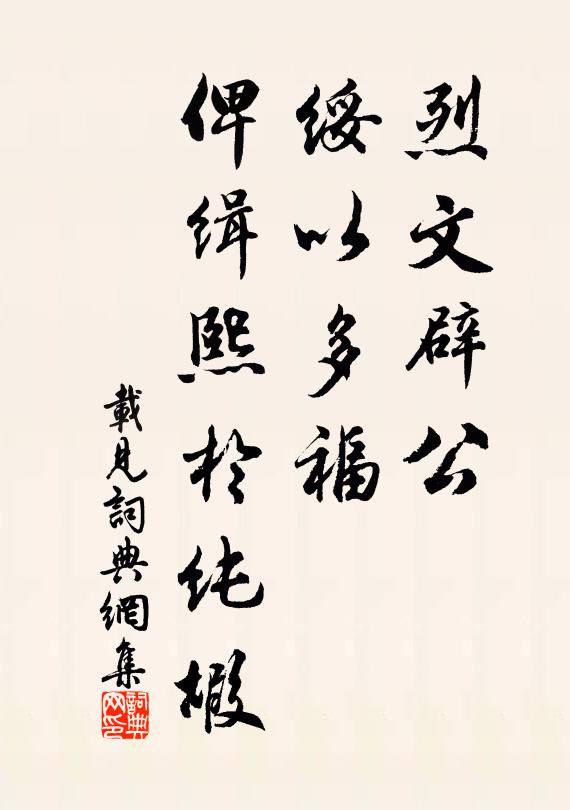 烈文辟公
綏以多福
俾緝熙於純嘏
載見詞典網集
詞典
网印